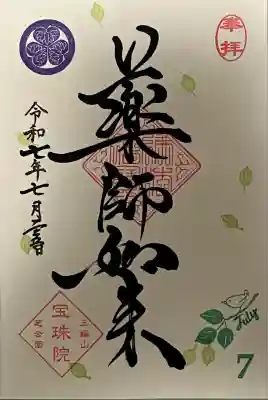 奉拝
薬師如来
令和七年七月
三縁山
宝珠院
芝公園
July
7